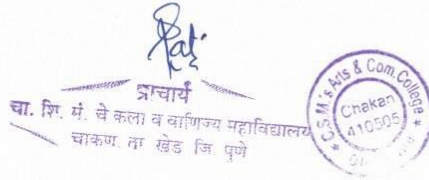 प्राचार्य
चा. शि. मं. चे कला व वाणिज्य महाविद्यालय
चाकण ता खेड जि पुणे
C.S.M.'s Arts & Com. College
Chakan
410505